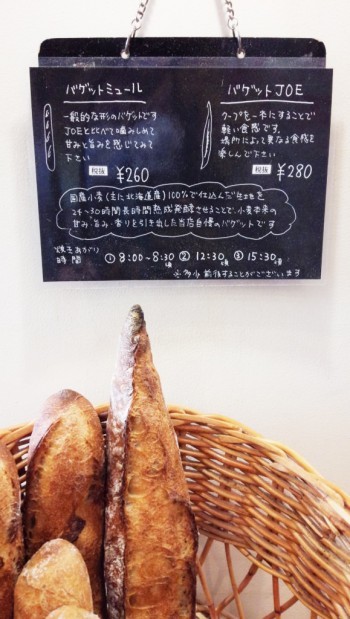 バゲットミュール
一般的な形のバゲットです
JOEと比べて噛みしめて
甘みと旨みを感じてみて
下さい
税抜 ¥260
バゲットJOE
クープを一本にすることで
軽い食感です。
場所によって異なる食感を
楽しんで下さい
税抜 ¥280
国産小麦(主に北海道産)100%で仕込んだ生地を
24〜30時間長時間熟成発酵させることで、小麦本来の
甘み・旨み・香りを引き出した当店自慢のバゲットです
焼きあがり
時間 ①8:00~8:30頃 ②12:30頃 ③15:30頃
※多少前後することがございます